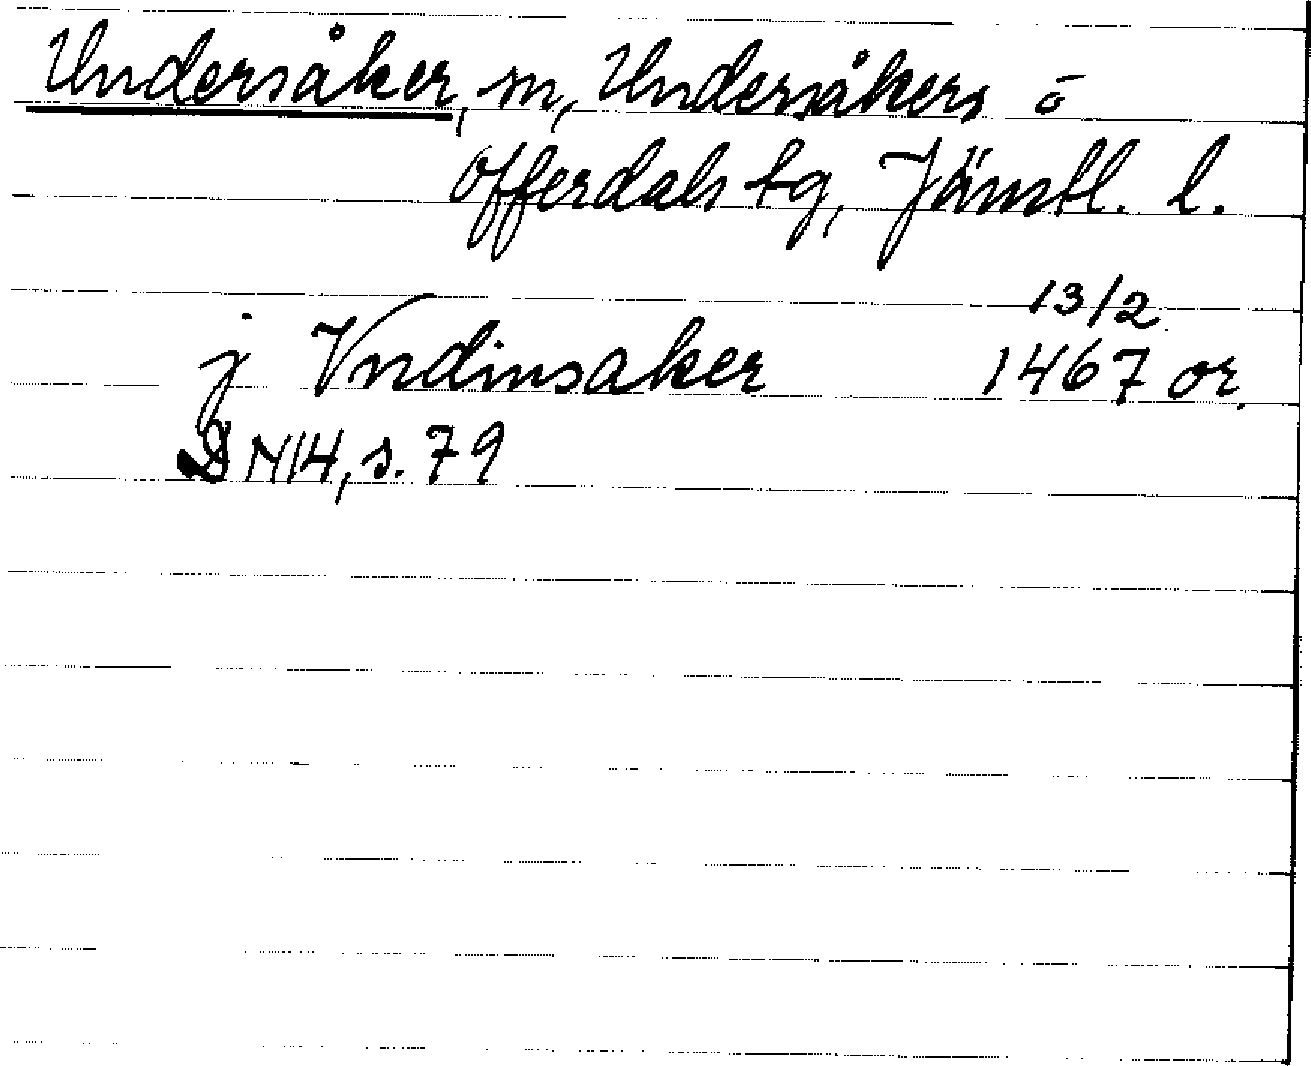 Undersåker, sn, Undersåkers o
Offerdals tg, Jämtl. l.
13/2
j Vndinsaker 1467 or.
DN 14, s. 79